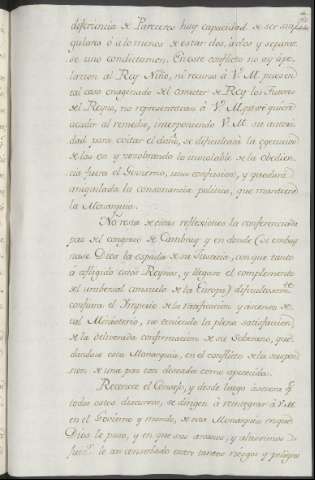 diferencia de Pareceres huvo capacidad de ser
gulares ó a lo menos de estar dos, à dos y separar
se uno conductamen. En este conflicto no ay ape
lacion al Rey Niño, ni recurso à V.M. pues en
tal caso enagenado del caracter de Rey los Fueros
del Reyno, no representaran à V.M. para
acudir al remedio, interponiendo V.M. su autori
dad para evitar el daño, se dificultarà la egecucion
de las en y zozobrando lo inmutable de la obedien
cia fuera el Govierno, una confusion, y quedara
aniquilada la consonancia politica, que mantiene
la Monarquia.
No resta de estas reflexiones la conferenciada
paz del congreso de Cambray y en donde
nase Dios la espada de su Justicia, con que tanto
à afligido estos Reynos, y llegase el complemento
del universal consuelo de la Europa)
confiara el Imperio de la ratificacion y
tal Ministerio, no teniendo la plena satisfaccion
de la deliverada confirmacion de su Soberano, que
dandose esta Monarquia, en el conflicto de la suspen
sion de una paz tan deseada como apetecida.
Reconoce el Consejo, y desde luego
todos estos discursos, se dirigen à reintegrar à V.M.
en el Govierno y mando, de esta Monarquia en que
Dios le puso, y en que sus arcanos, y altisimos
le han conservado entre tantos riesgos y peligros